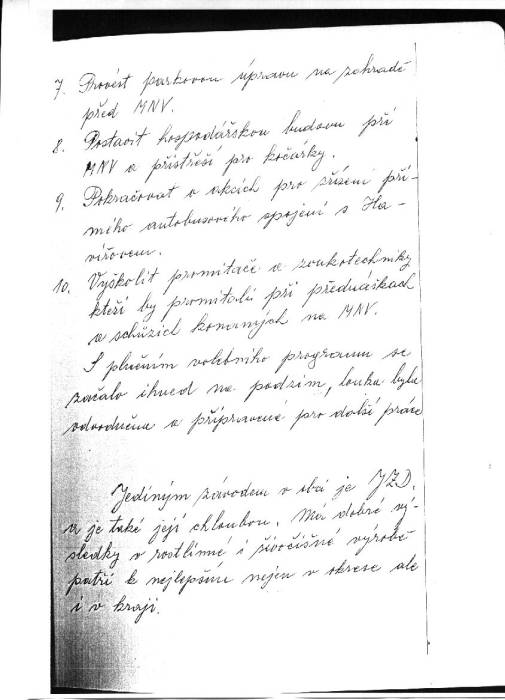 7. Provést parkovou úpravu na zahradě
před MNV.
8. Postavit hospodářskou budovu při
MNV a přístřeší pro kočárky.
9. Pokračovat v akcích pro zřízení pří-
mého autobusového spojení s Ha-
vířovem.
10. Vyškolit promítače a zvukotechniky
kteří by promítali při přednáškách
a schůzích konaných na MNV.
S plněním volebního programu se
začalo ihned na podzim, louka byla
odvodněna a připravená pro další práce
Jediným závodem v obci je JZD,
a je také její chloubou. Má dobré vý-
sledky v rostlinné i živočišné výrobě
patří k nejlepším nejen v okrese ale
i v kraji.